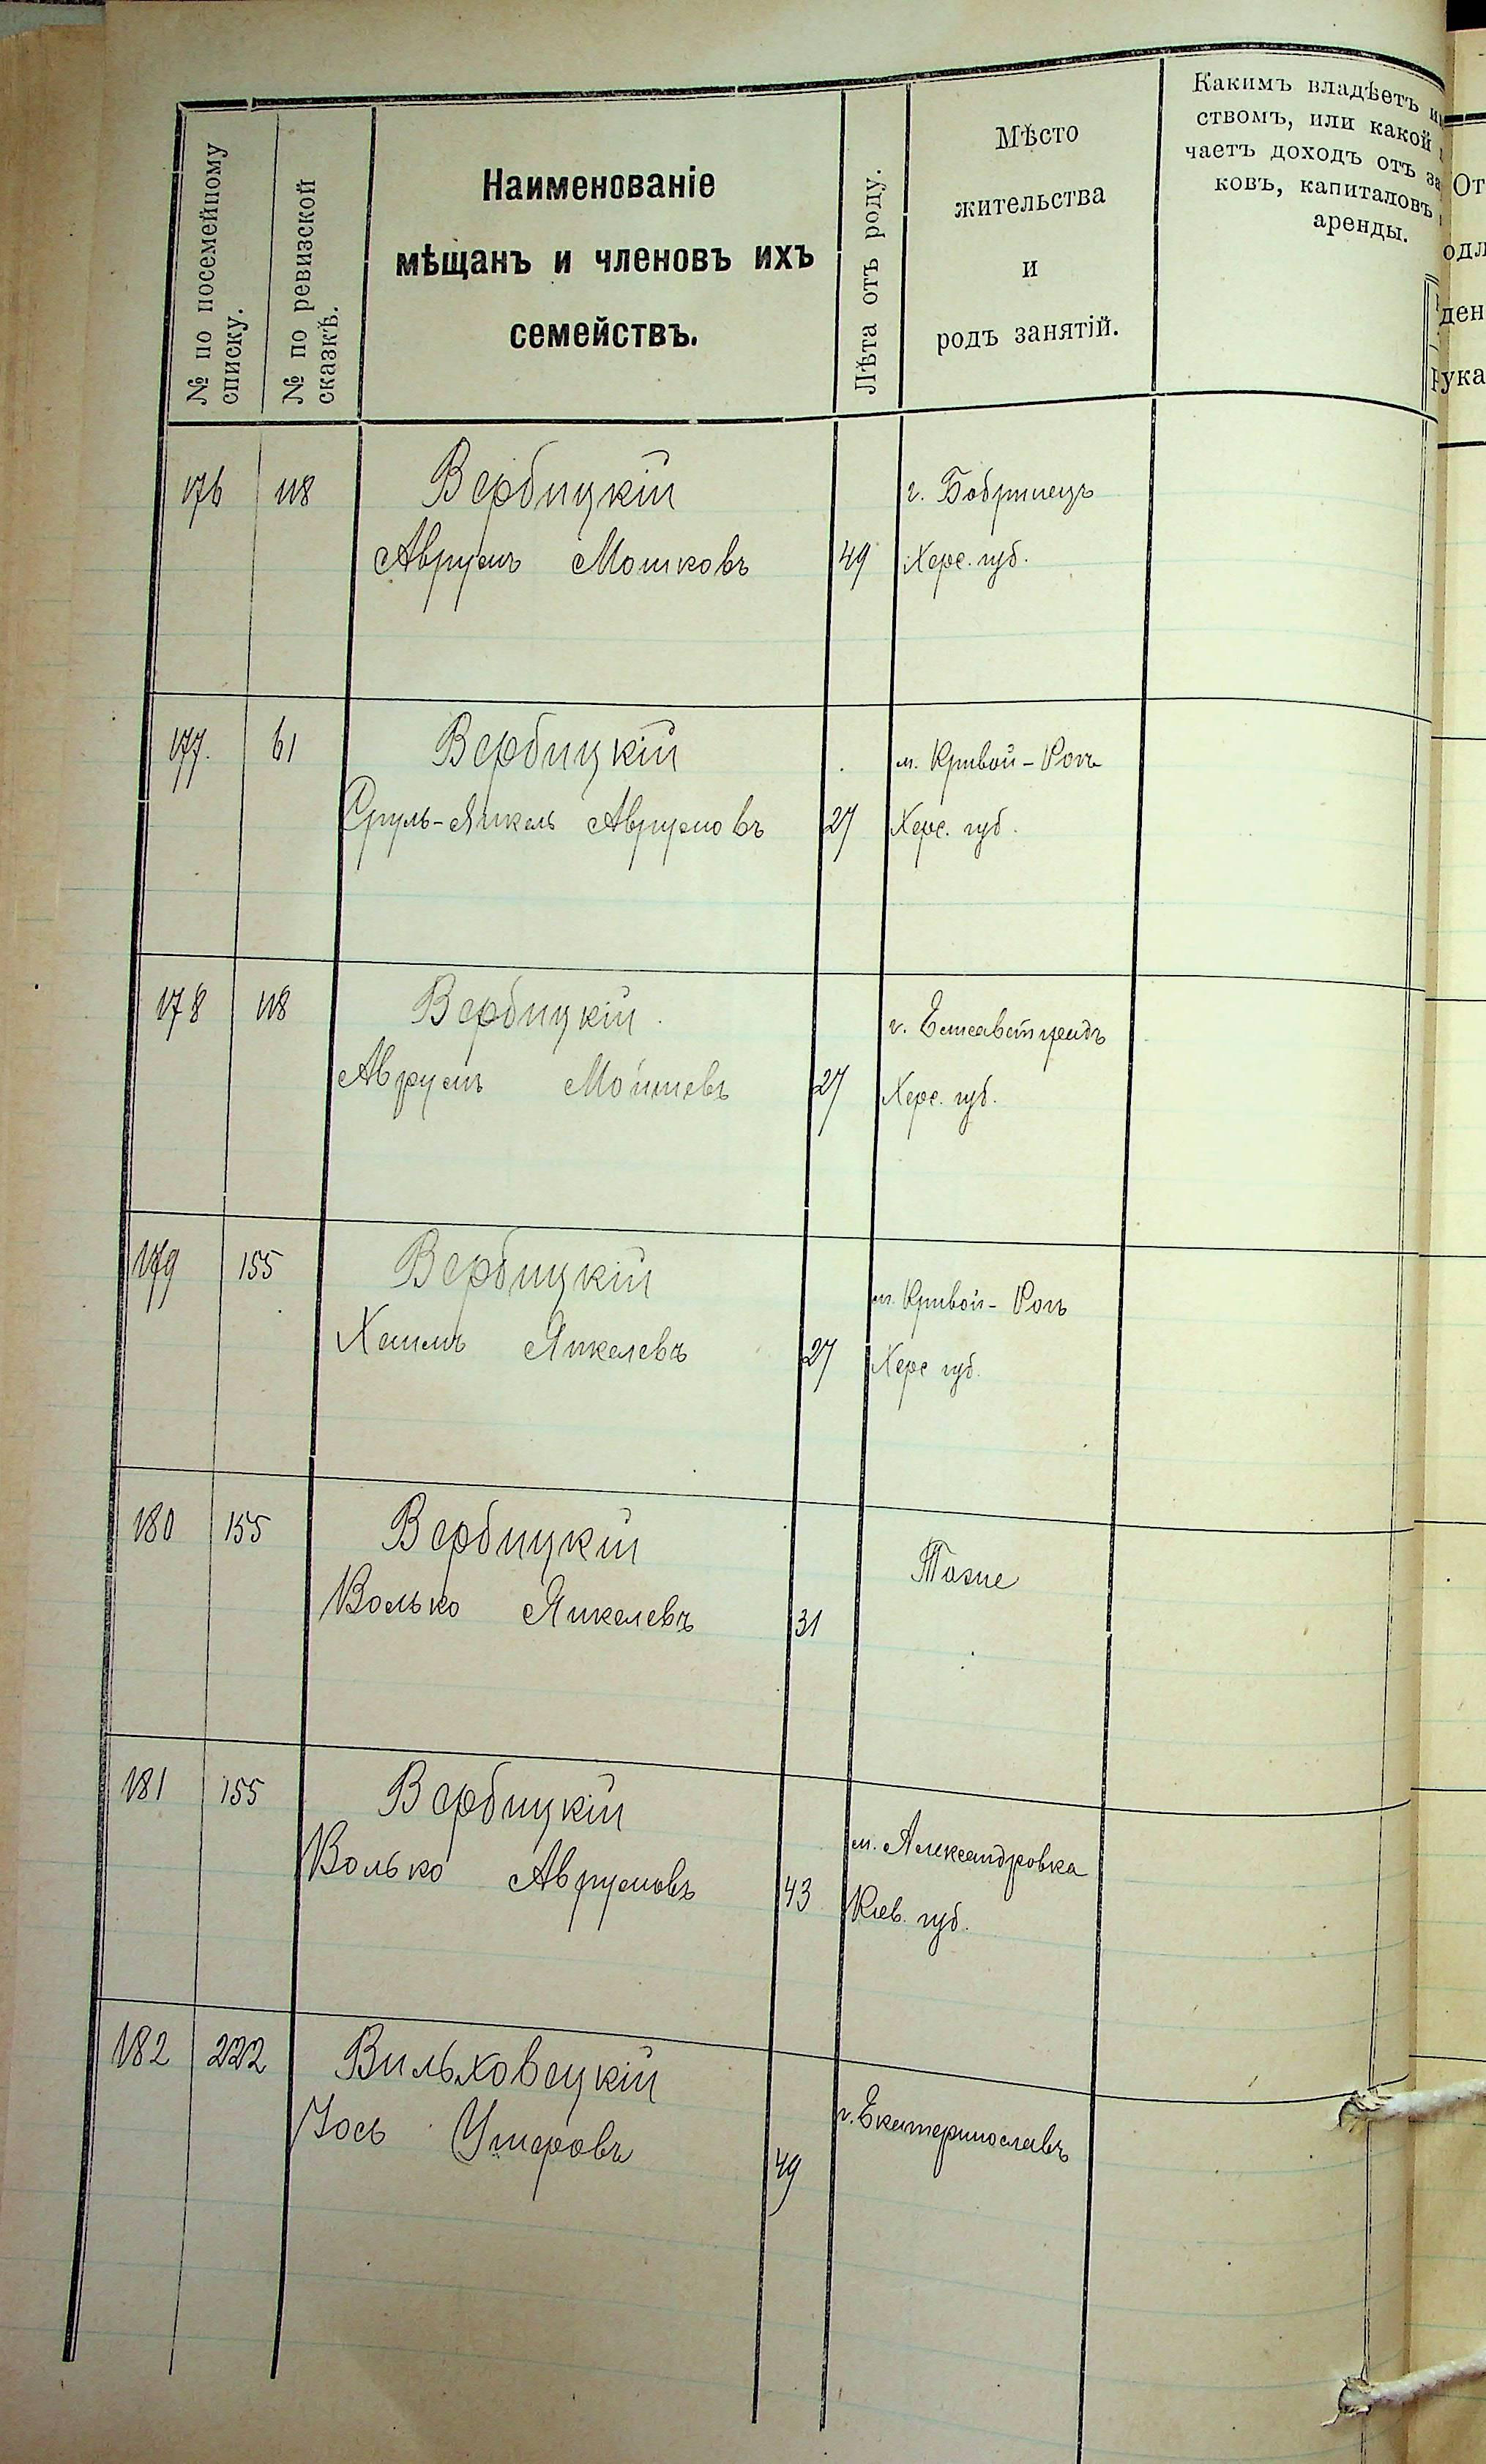 № по посемейному
списку.
№ по ревизской
сказкѣ.
Наименованіе
мѣщанъ и членовъ ихъ
семействъ.
Лѣта отъ роду.
Мѣсто
жительства
и
родъ занятій.
Какимъ владѣетъ
ствомъ, или какой
чаетъ доходъ отъ за
ковъ, капиталовъ
аренды.
От
одл
ден
ука
176 118 Вербицкій г. Бобринецъ
Аврумъ Мошковъ 49 Херс. губ.
177. 61 Вербицкій м. Кривой-Рогъ
Сруль-Янкель Аврумовъ 27 Херс. губ.
178 118 Вербицкій г. Елисаветградъ
Аврумъ Мойшевъ 27 Херс. губ.
179 155 Вербицкій м. Кривой-Рогъ
Хаимъ Янкелевъ 27 Херс губ.
180 155 Вербицкій Тоже
Волько Янкелевъ 31
181 155 Вербицкій м. Александровка
Волько Аврумовъ 43 Кіев. губ.
182 222 Вильховецкій г. Екатеринославъ
Іось Умеровъ 49